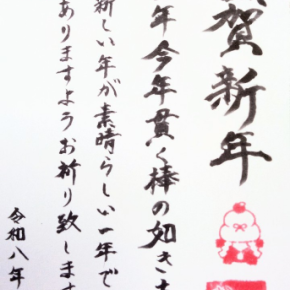 賀新年
年今年貫く棒の如きも
新しい年が素晴らしい一年で
ありますようお祈り致します
令和八年